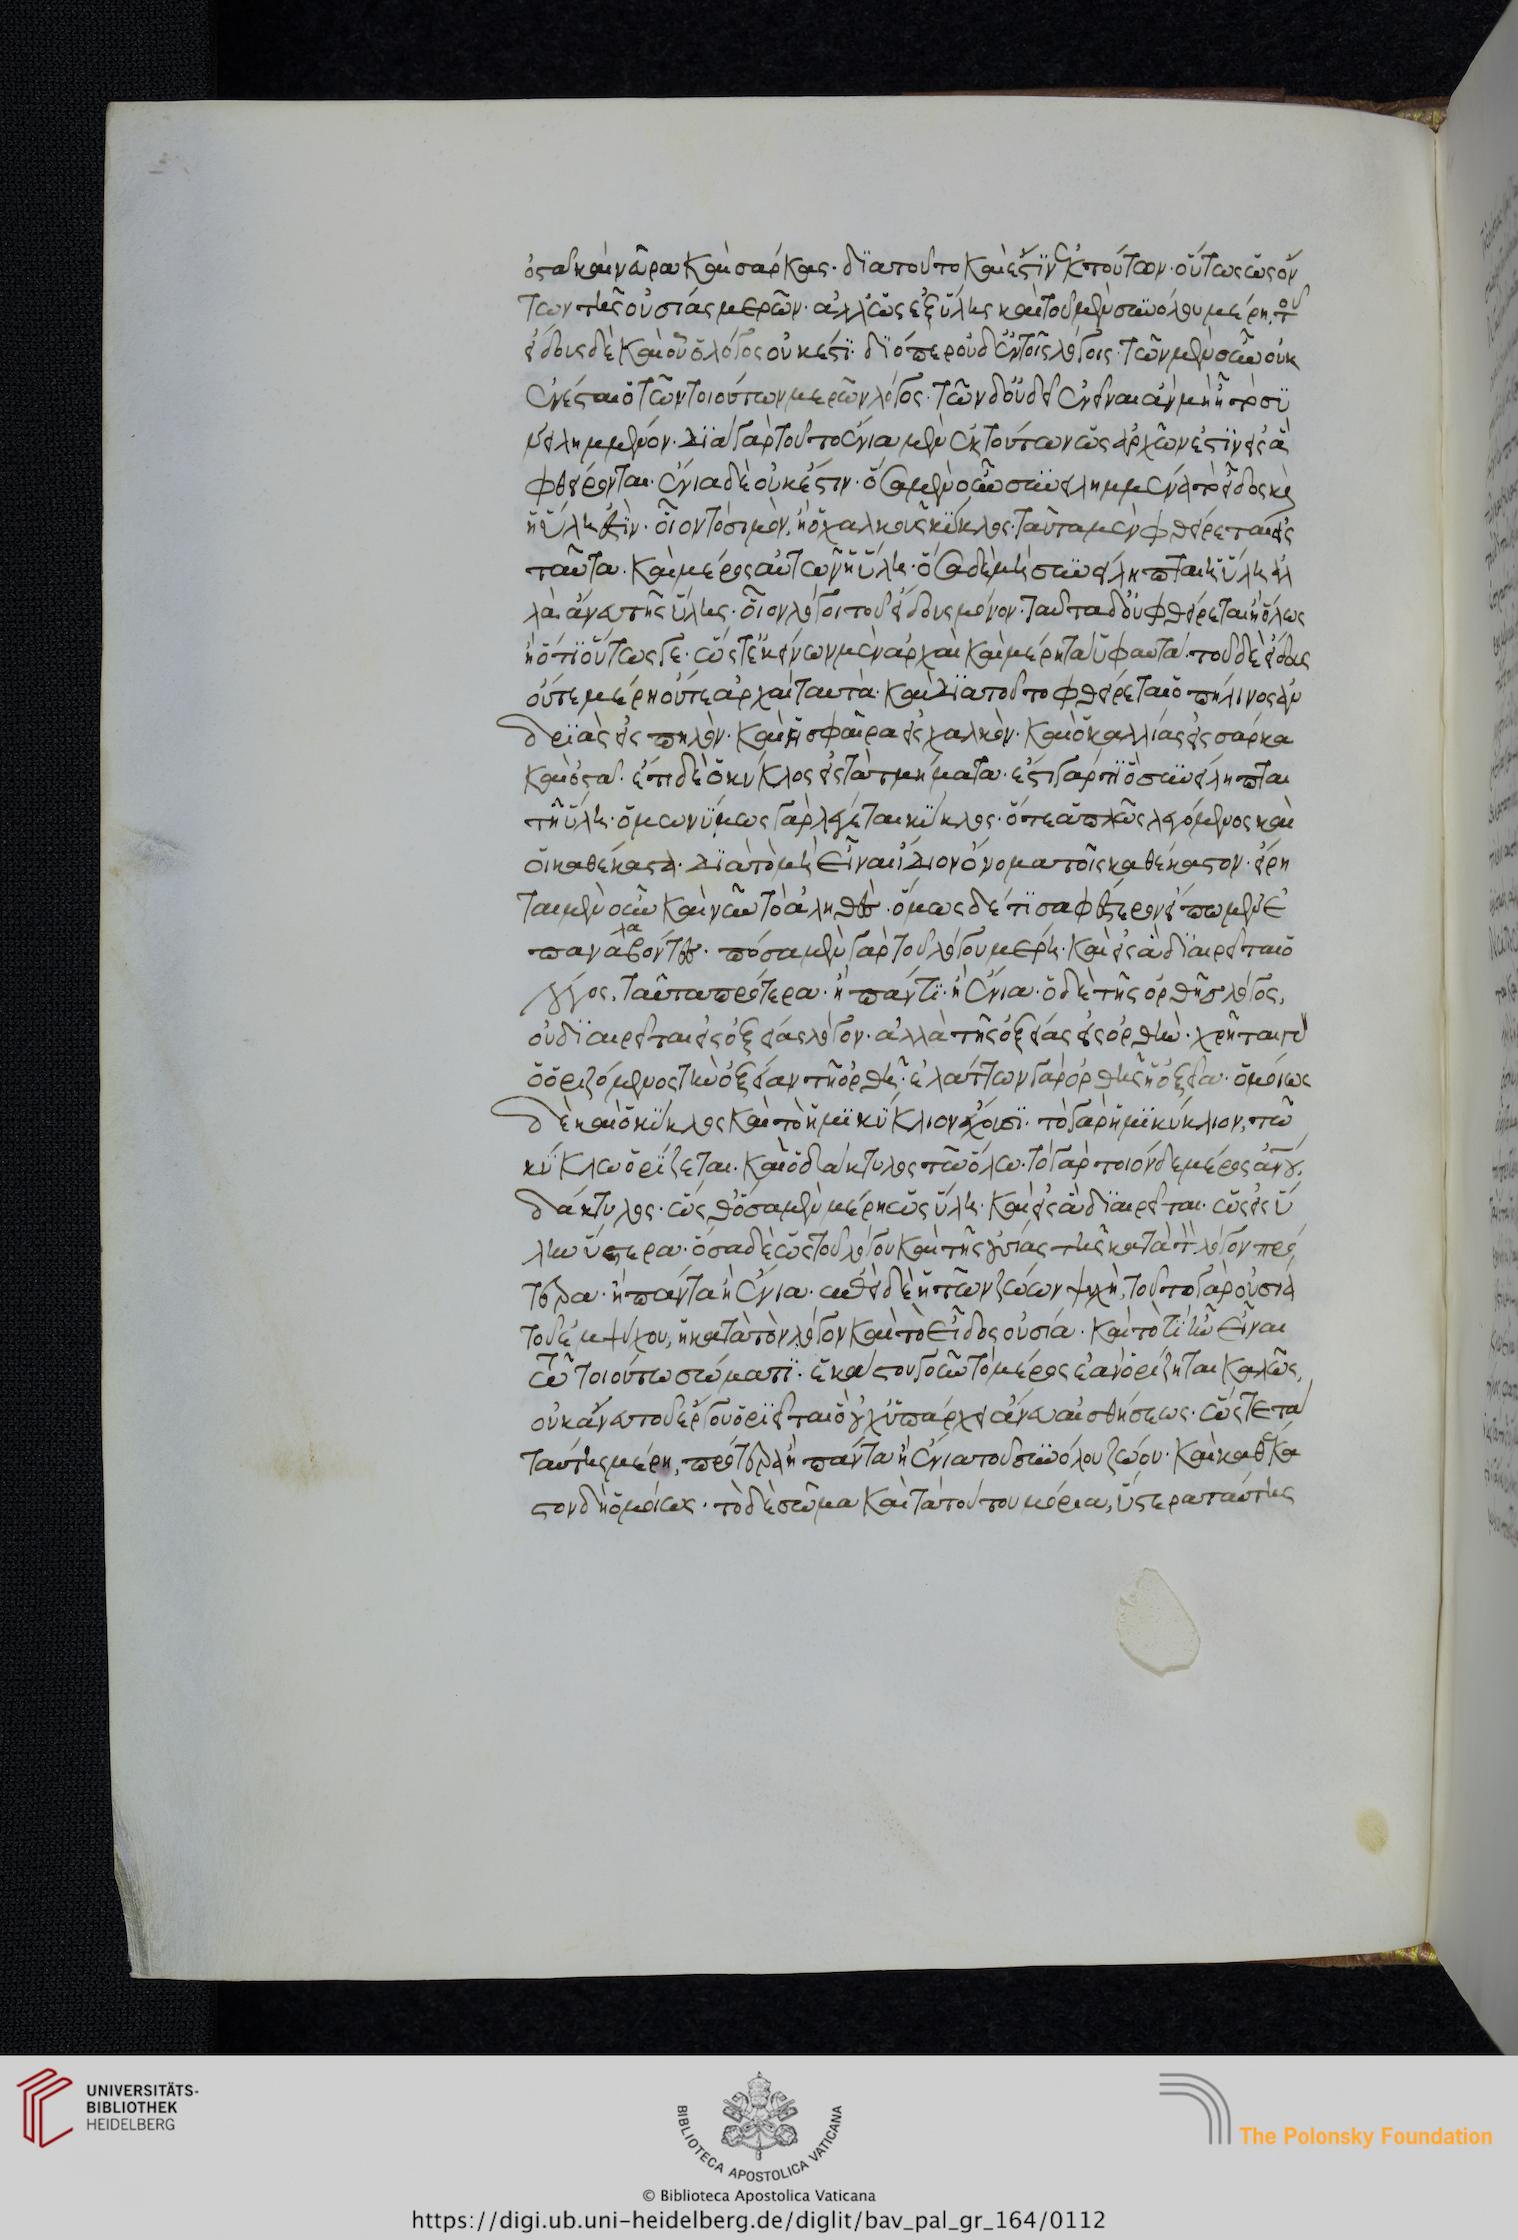 ὀστᾶ καὶ νεῦρα καὶ σάρκας· διὰ τοῦτο καὶ ἐστὶν ἐκ τούτων· οὕτως ὡς ὄν
των τῆς οὐσίας μερῶν· ἀλλ' ὡς ἐξ ὕλης καὶ τοῦ μὲν συνόλου μέρη, τοῦ
εἴδους δὲ καὶ οὗ ὁ λόγος οὐκέτι· διόπερ οὐδ' ἐν τοῖς λόγοις· τῶν μὲν οὖν οὐκ
ἐνέσται ὁ τῶν τοιούτων μερῶν λόγος· τῶν δ' οὐ δεῖ ἐνεῖναι ἂν μὴ ᾖ τοῦ συ
νειλημμένου· διὰ γὰρ τοῦτο ἔνια μὲν ἐκ τούτων ὡς ἀρχῶν ἐστὶν εἰς ἃ
φθείρονται· ἔνια δὲ οὐκ ἔστιν· ὅσα μὲν οὖν συνειλημμένα τὸ εἶδος καὶ
ἡ ὕλη ἐστὶν· οἷον τὸ σιμὸν, ἢ ὁ χαλκοῦς κύκλος· ταῦτα μὲν φθείρεται εἰς
ταῦτα· καὶ μέρος αὐτῶν ἡ ὕλη· ὅσα δὲ μὴ συνείληπται ἡ ὕλη ἀλ
λὰ ἄνευ τῆς ὕλης· οἷον λόγοι τοῦ εἴδους μόνον· ταῦτα δ' οὐ φθείρεται ἢ ὅλως
ἢ ὅτι οὕτως γε· ὥστ' ἐκείνων μὲν ἀρχαὶ καὶ μέρη τὰ ὑφ' αὑτά· τοῦ δὲ εἴδους
οὔτε μέρη οὔτε ἀρχαὶ ταῦτα· καὶ διὰ τοῦτο φθείρεται ὁ πήλινος ἀν
δριὰς εἰς πηλὸν· καὶ ἡ σφαῖρα εἰς χαλκὸν· καὶ ὁ καλλίας εἰς σάρκα
καὶ ὀστᾶ· ἔτι δὲ ὁ κύκλος εἰς τὰ τμήματα· ἔστι γάρ τι ὃ συνείληπται
τῇ ὕλῃ· ὁμωνύμως γὰρ λέγεται κύκλος· ὅ τε ἁπλῶς λεγόμενος καὶ
ὁ καθέκαστα· διὰ τὸ μὴ εἶναι ἴδιον ὄνομα τοῖς καθέκαστον· εἴρη
ται μὲν οὖν καὶ νῦν τὸ ἀληθές· ὅμως δ' ἔτι σαφέστερον εἴπωμεν ἐ
παναλαβόντες· πόσα μὲν γὰρ τοῦ λόγου μέρη· καὶ εἰς ἃ διαιρεῖται ὁ
λόγος, ταῦτα πρότερα· ἢ πάντα· ἢ ἔνια· ὁ δὲ τῆς ὀρθῆς λόγος,
οὐ διαιρεῖται εἰς ὀξείας λόγον· ἀλλὰ τῆς ὀξείας εἰς ὀρθήν· χρῆται γὰρ
ὁ ὁριζόμενος τὴν ὀξεῖαν τῇ ὀρθῇ· ἐλάττων γὰρ ὀρθῆς ἡ ὀξεῖα· ὁμοίως
δὲ καὶ ὁ κύκλος καὶ τὸ ἡμικύκλιον ἔχουσι· τὸ γὰρ ἡμικύκλιον, τῷ
κύκλῳ ὁρίζεται· καὶ ὁ δάκτυλος τῷ ὅλῳ· τὸ γὰρ τοιόνδε μέρος ἀνου
δάκτυλος· ὥσθ' ὅσα μὲν μέρη ὡς ὕλη· καὶ εἰς ἃ διαιρεῖται· ὡς εἰς ὕ
λην ὕστερα· ὅσα δὲ ὡς τοῦ λόγου καὶ τῆς οὐσίας τῆς κατὰ τὸν λόγον πρό
τερα· ἢ πάντα ἢ ἔνια· ἐπεὶ δὲ ἡ τῶν ζώων ψυχὴ, τοῦτο γὰρ οὐσία
τοῦ ἐμψύχου, ἡ κατὰ τὸν λόγον καὶ τὸ εἶδος οὐσία· καὶ τὸ τί ἦν εἶναι
τῷ τοιούτῳ σώματι· ἑκάστου γοῦν τὸ μέρος ἐὰν ὁρίζηται καλῶς,
οὐκ ἄνευ τοῦ ἔργου ὁριεῖται ὃ οὐχ ὑπάρχει ἄνευ αἰσθήσεως· ὥστε τὰ
ταύτης μέρη, πρότερα ἢ πάντα ἢ ἔνια τοῦ συνόλου ζώου· καὶ καθ' ἕκα
στον δὴ ὁμοίως· τὸ δὲ σῶμα καὶ τὰ τούτου μόρια, ὕστερα ταύτης
UNIVERSITÄTS-
BIBLIOTHEK
HEIDELBERG
BIBLIOTECA APOSTOLICA VATICANA
The Polonsky Foundation
© Biblioteca Apostolica Vaticana
https://digi.ub.uni-heidelberg.de/diglit/bav_pal_gr_164/0112